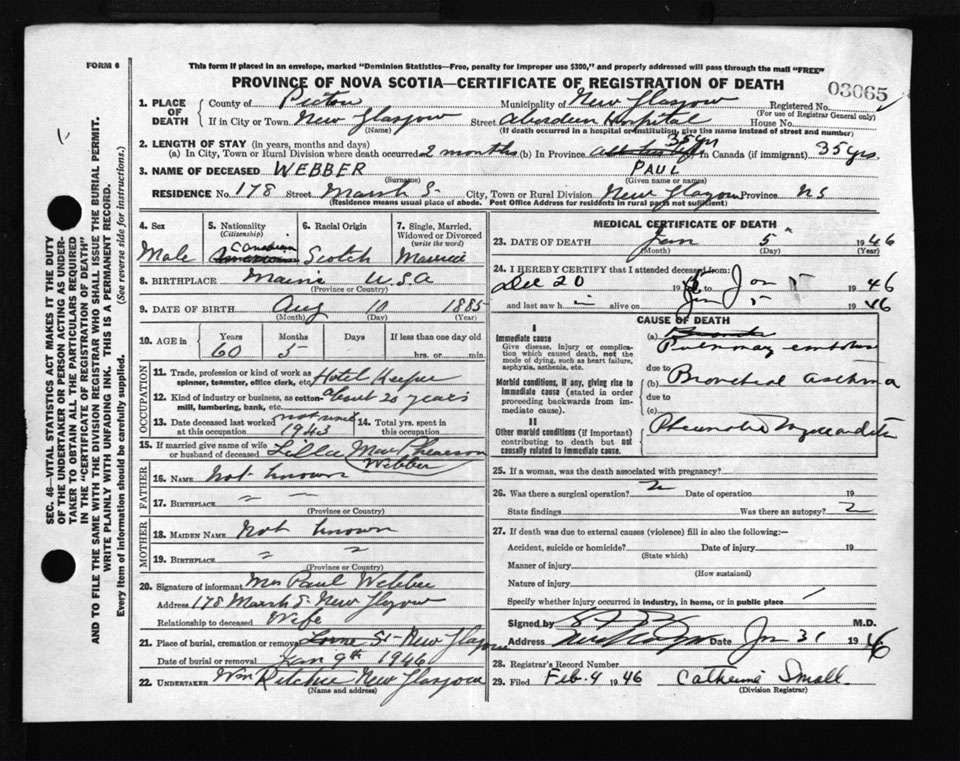 FORM 6
This form if placed in an envelope, marked "Dominion Statistics—Free, penalty for improper use $300," and properly addressed will pass through the mail "FREE"
PROVINCE OF NOVA SCOTIA—CERTIFICATE OF REGISTRATION OF DEATH
03065
1. PLACE OF DEATH { County of Pictou Municipality of New Glasgow Registered No.
(For use of Registrar General only)
If in City or Town New Glasgow Street Aberdeen Hospital House No.
(Name) (If death occurred in a hospital or institution, give the name instead of street and number)
2. LENGTH OF STAY (in years, months and days)
(a) In City, Town or Rural Division where death occurred 2 months (b) In Province 35 yrs In Canada (if immigrant) 35 yrs.
3. NAME OF DECEASED WEBBER PAUL
(Surname) (Given name or names)
RESIDENCE No. 178 Street Marsh S. City, Town or Rural Division New Glasgow Province N S
(Residence means usual place of abode. Post Office Address for residents in rural parts not sufficient)
4. Sex 5. Nationality (Citizenship) 6. Racial Origin 7. Single, Married, Widowed or Divorced (write the word)
Male Canadian American Scotch Married
8. BIRTHPLACE Maine U.S.A
(Province or Country)
9. DATE OF BIRTH Aug 10 1885
(Month) (Day) (Year)
10. AGE in { Years Months Days If less than one day old
60 5 hrs. or min.
OCCUPATION
11. Trade, profession or kind of work as spinner, teamster, office clerk, etc. Hotel Keeper
12. Kind of industry or business, as cotton-mill, lumbering, bank, etc. About 20 years
13. Date deceased last worked at this occupation 1943 14. Total yrs. spent in this occupation
15. If married give name of wife or husband of deceased Lilla Webber
FATHER
16. NAME Not known
17. BIRTHPLACE " — "
(Province or Country)
MOTHER
18. MAIDEN NAME Not known
19. BIRTHPLACE " "
(Province or Country)
20. Signature of informant Mrs Paul Webber
Address 178 Marsh S New Glasgow
Relationship to deceased Wife
21. Place of burial, cremation or removal Lorne St - New Glasgow
Date of burial or removal Jan 9th 1946
22. UNDERTAKER Wm Ritchie New Glasgow
(Name and address)
MEDICAL CERTIFICATE OF DEATH
23. DATE OF DEATH Jan 5 1946
(Month) (Day) (Year)
24. I HEREBY CERTIFY that I attended deceased from:
Dec 20 19 to Jan 1946
and last saw h i alive on Jan 5 1946
CAUSE OF DEATH
I
Immediate cause
Give disease, injury or complication which caused death, not the mode of dying, such as heart failure, asphyxia, asthenia, etc.
(a) Pulmonary embolus
due to
Morbid conditions, if any, giving rise to immediate cause (stated in order proceeding backwards from immediate cause).
(b) Bronchial asthma
due to
(c)
II
Other morbid conditions (if important) contributing to death but not causally related to immediate cause.
25. If a woman, was the death associated with pregnancy?
26. Was there a surgical operation? Date of operation 19
State findings Was there an autopsy?
27. If death was due to external causes (violence) fill in also the following:—
Accident, suicide or homicide? Date of injury 19
(State which)
Manner of injury
(How sustained)
Nature of injury
Specify whether injury occurred in industry, in home, or in public place
Signed by M.D.
Address New Glasgow Date Jan 31 1946
28. Registrar's Record Number
29. Filed Feb. 4 1946 Catherine Small
(Division Registrar)
SEC. 46—VITAL STATISTICS ACT MAKES IT THE DUTY
OF THE UNDERTAKER OR PERSON ACTING AS UNDERTAKER
TO OBTAIN ALL THE PARTICULARS REQUIRED
IN THE "CERTIFICATE OF REGISTRATION OF DEATH"
AND TO FILE THE SAME WITH THE DIVISION REGISTRAR WHO SHALL ISSUE THE BURIAL PERMIT.
WRITE PLAINLY WITH UNFADING INK. THIS IS A PERMANENT RECORD.
Every item of information should be carefully supplied. (See reverse side for instructions.)